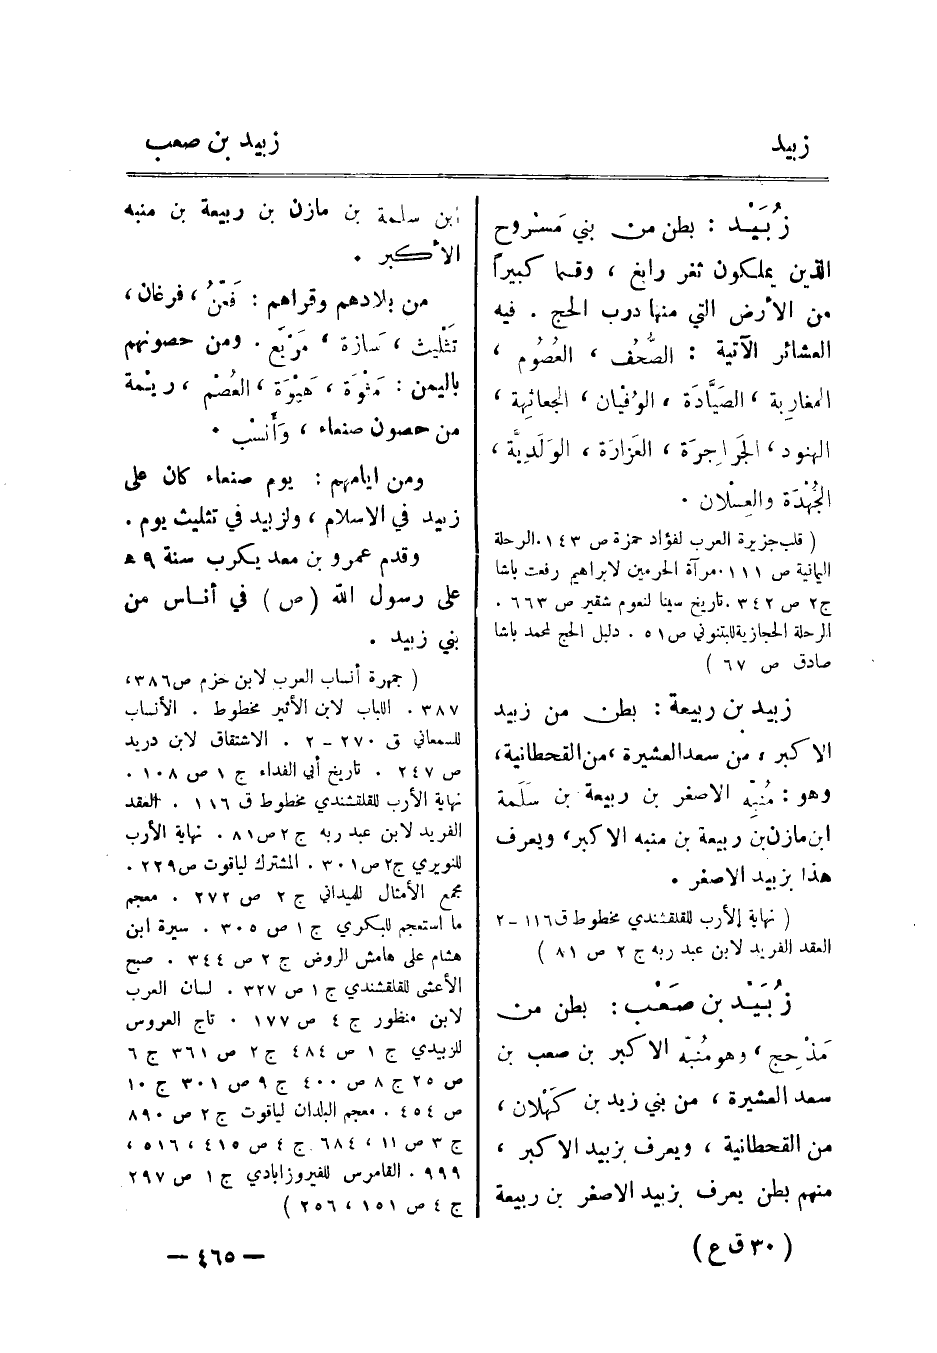 زبيد
زبيد بن صعب
زُبَيْد : بطن من بني مَسْروح
الذين يملكون ثغر رابغ ، وقسما كبيراً
من الأرض التي منها درب الحج . فيه
العشائر الآتية : الصُّحُف ، العُصُوم ،
المغاربة ، الصَيَّادَة ، الوُفْيان ، الجعاثِهة ،
الهنود ، الجَراجِرَة ، العَزارَة ، الوَلَدِيَّة ،
الجُهْدَة والعِسْلان .
( قلب جزيرة العرب لفؤاد حمزة ص ١٤٣ . الرحلة
اليمانية ص ١١١ . مرآة الحرمين لابراهيم رفعت باشا
ج ٢ ص ٣٤٢ . تاريخ سينا لنعوم شقير ص ٦٦٣ .
الرحلة الحجازية للبتنوني ص ٥١ . دليل الحج لمحمد باشا
صادق ص ٦٧ )
زبيد بن ربيعة : بطن من زبيد
الاكبر ، من سعد العشيرة ، من القحطانية ،
وهو : مُنَبِّه الاصغر بن ربيعة بن سَلَمة
ابن مازن بن ربيعة بن منبه الاكبر ، ويعرف
هذا بزبيد الاصغر .
( نهاية الأرب للقلقشندي مخطوط ق ١١٦ – ٢
العقد الفريد لابن عبد ربه ج ٢ ص ٨١ )
زُبَيْد بن صَعْب : بطن من
مَذْحِج ، وهو مُنَبِّه الاكبر بن صعب بن
سعد العشيرة ، من بني زيد بن كَهْلان ،
من القحطانية ، ويعرف بزبيد الاكبر ،
منهم بطن يعرف بزبيد الاصغر بن ربيعة
ابن سلمة بن مازن بن ربيعة بن منبه
الأكبر .
من بلادهم وقراهم : قَنَنُ ، فرغان ،
تَثْليث ، سَازة ، مَرْبَع . ومن حصونهم
باليمن : مَثْوَة ، هَيْوَة ، العُصْم ، ريمة
من حصون صنعاء ، وأَنسْب .
ومن ايامهم : يوم صنعاء كان على
زبيد في الاسلام ، ولزبيد في تثليث يوم .
وقدم عمرو بن معد يكرب سنة ٩ ه
على رسول الله ( ص ) في أناس من
بني زبيد .
( جمهرة أنساب العرب لابن حزم ص ٣٨٦ ،
٣٨٧ . اللباب لابن الأثير مخطوط . الأنساب
للسمعاني ق ٢٧٠ – ٢ . الاشتقاق لابن دريد
ص ٢٤٧ . تاريخ أبي الفداء ج ١ ص ١٠٨ .
نهاية الأرب للقلقشندي مخطوط ق ١١٦ . العقد
الفريد لابن عبد ربه ج ٢ ص ٨١ . نهاية الأرب
للنويري ج ٢ ص ٣٠١ . المشترك لياقوت ص ٢٢٩ .
مجمع الأمثال للميداني ج ٢ ص ٢٧٢ . معجم
ما استعجم للبكري ج ١ ص ٣٠٥ . سيرة ابن
هشام على هامش الروض ج ٢ ص ٣٤٤ . صبح
الأعشى للقلقشندي ج ١ ص ٣٢٧ . لسان العرب
لابن منظور ج ٤ ص ١٧٧ . تاج العروس
للزبيدي ج ١ ص ٤٨٤ ج ٢ ص ٣٦١ ج ٦
ص ٢٥ ج ٨ ص ٤٠٠ ج ٩ ص ٣٠١ ج ١٠
ص ٤٥٤ . معجم البلدان لياقوت ج ٢ ص ٨٩٠
ج ٣ ص ١١ ، ٦٨٤ . ج ٤ ص ٤١٥ ، ٥١٦ ،
٩٩٩ . القاموس للفيروزابادي ج ١ ص ٢٩٧
ج ٤ ص ١٥١ ، ٢٥٦ )
( ٣٠ ق ع )
— ٤٦٥ —